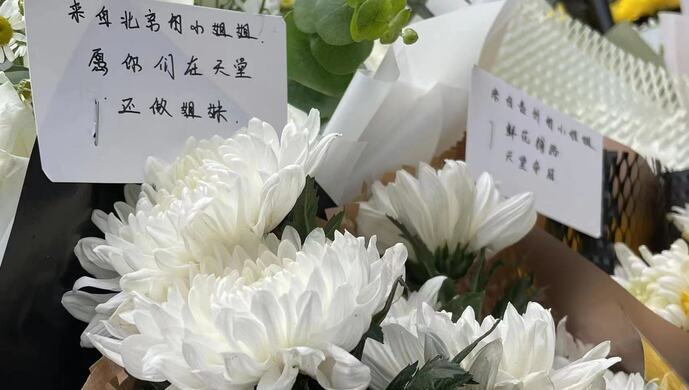 来自北京的小姐姐.
愿你们在天堂
还做姐妹.
来自贵州的小姐姐
鲜花铺路
天堂幸福